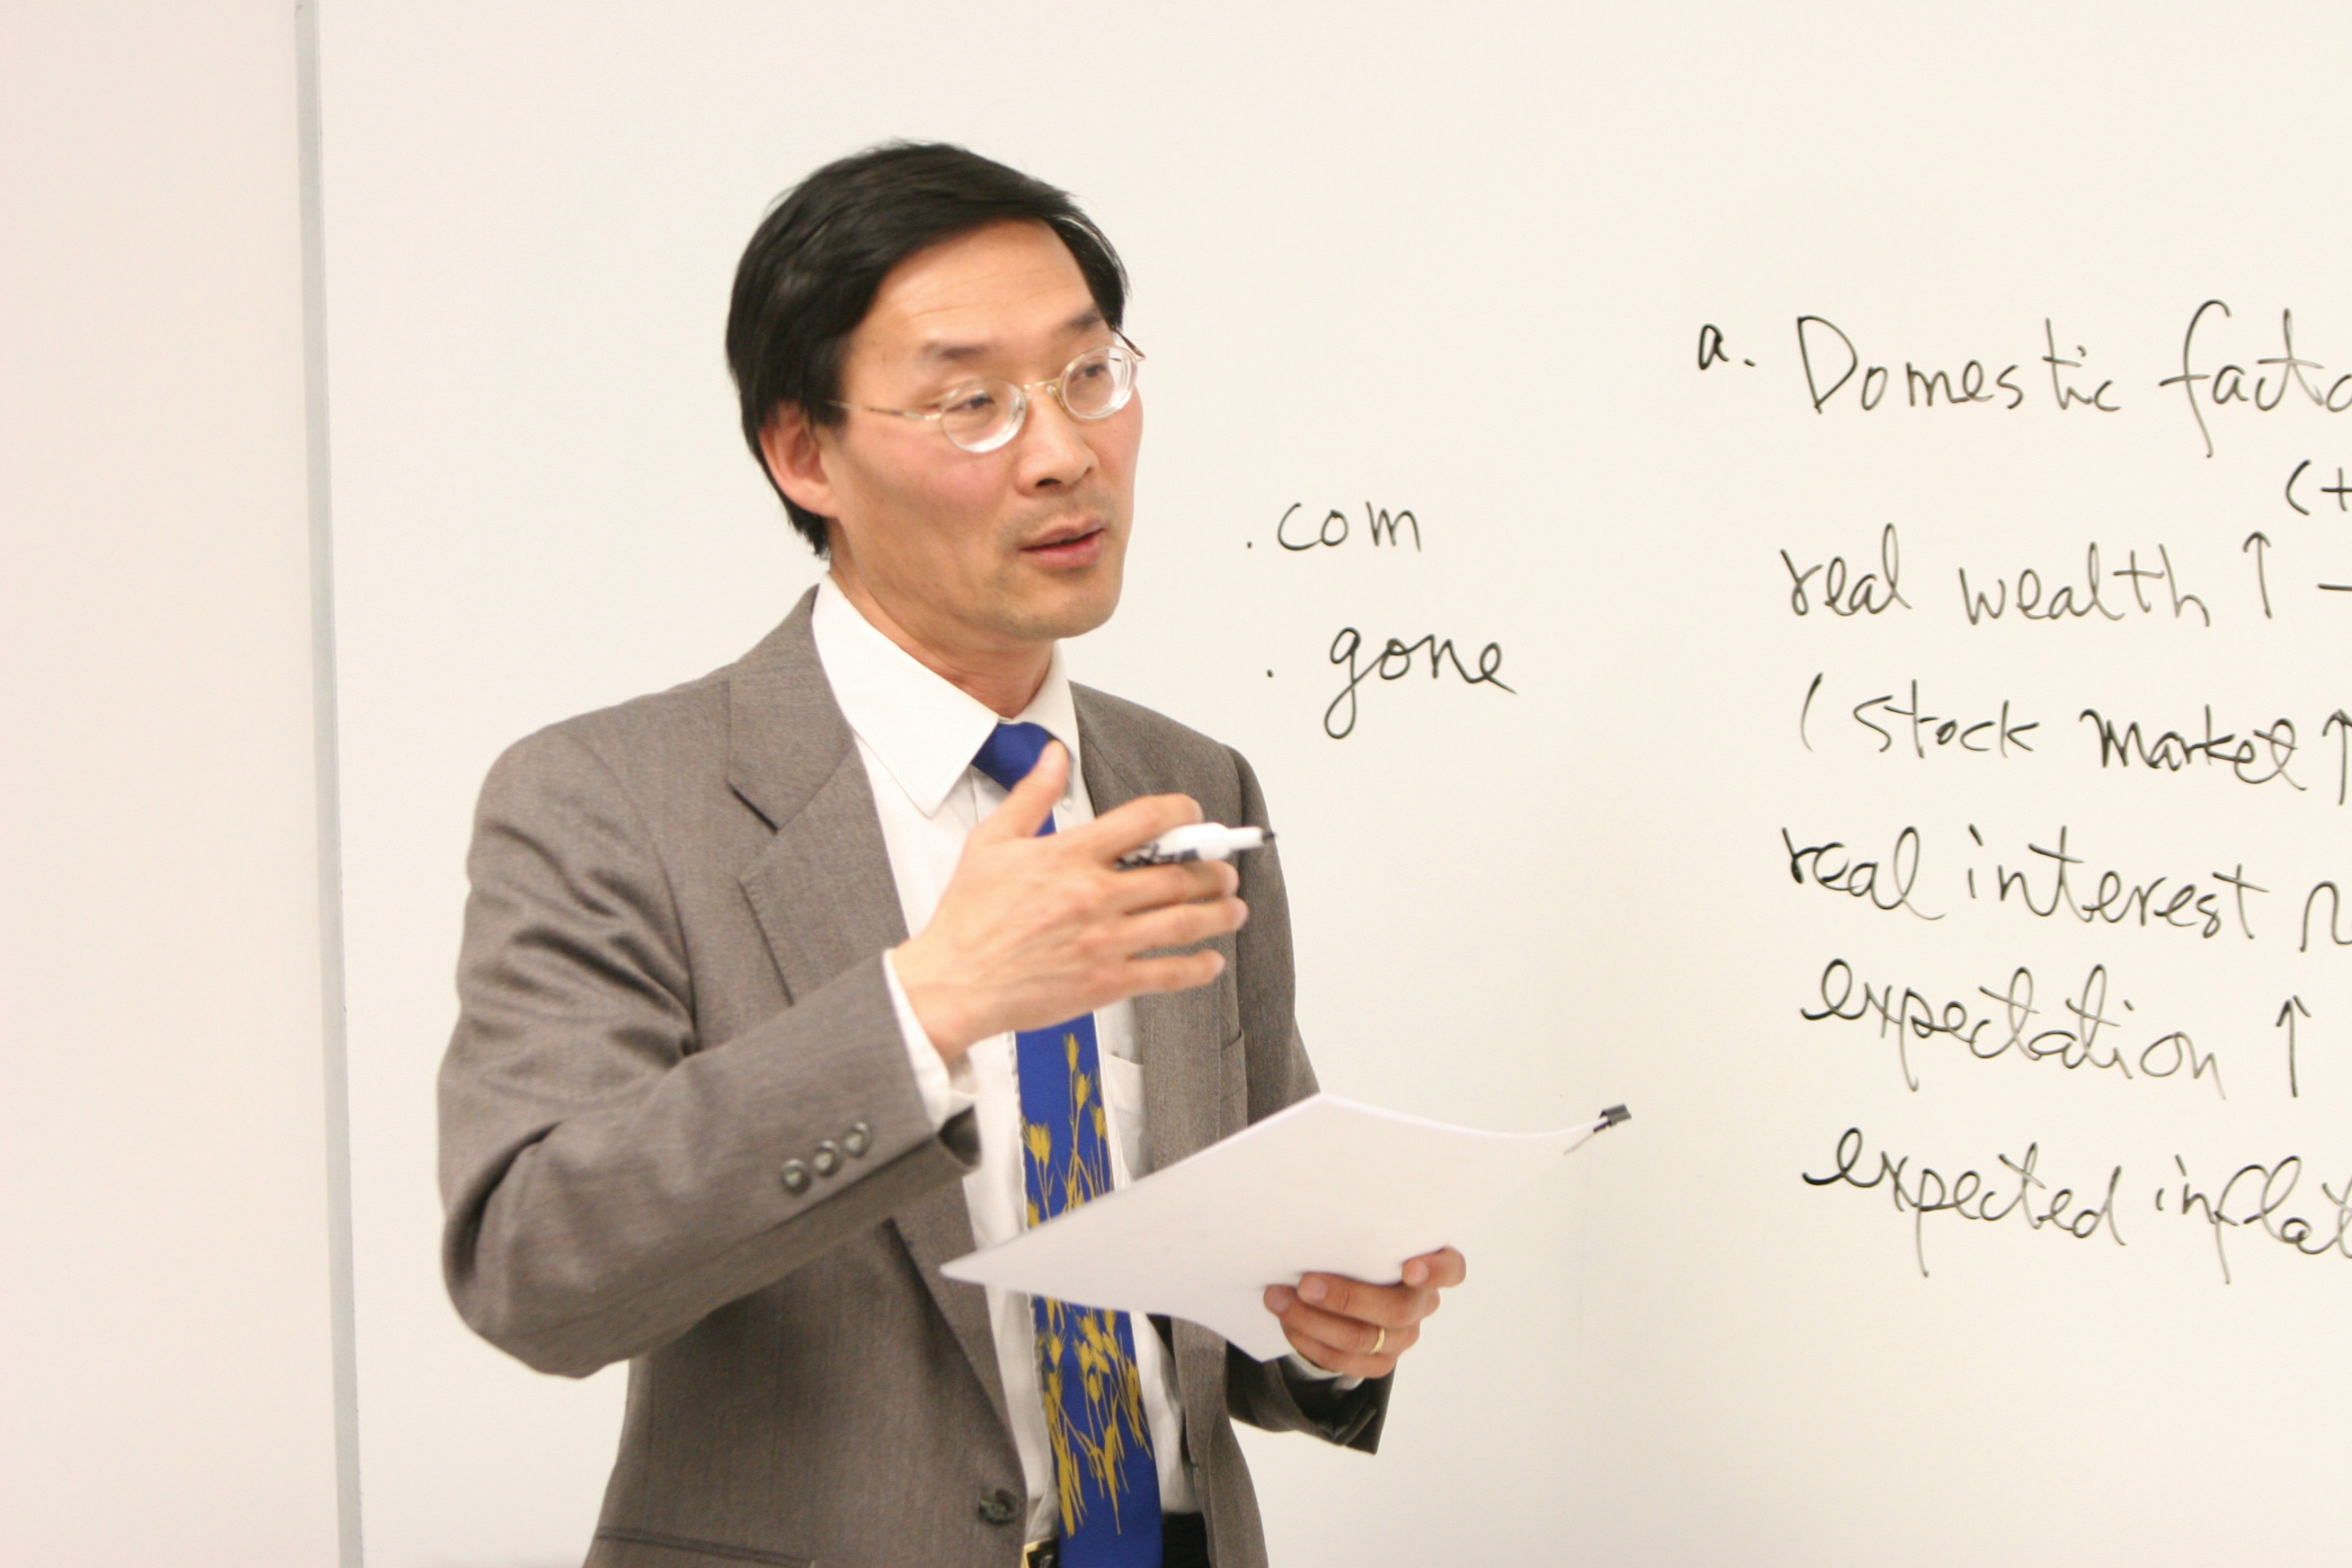 .com
. gone
a. Domestic facto
(+
real wealth ↑ -
(stock market ↑
real interest
expectation ↑
expected inflat